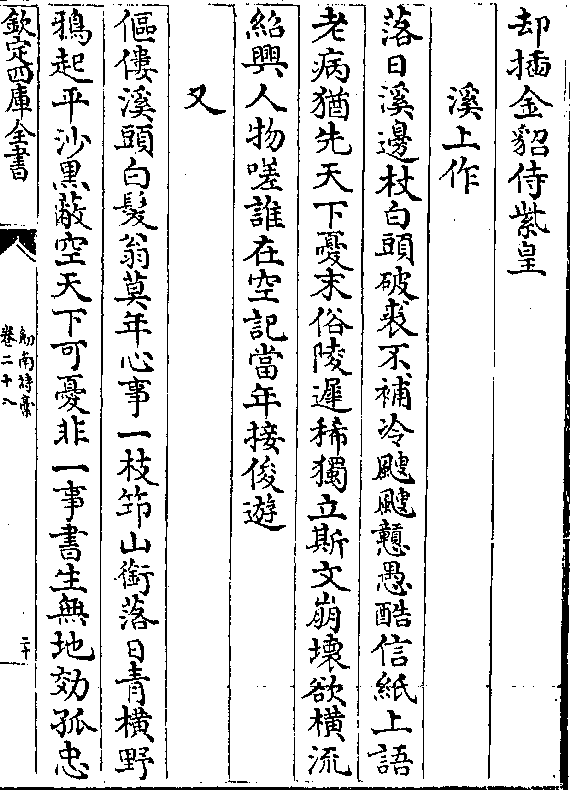 却插金貂侍紫皇
溪上作
落日溪邊杖白頭破裘不補冷颼颼戇愚酷信紙上語
老病猶先天下憂末俗陵遲稀獨立斯文崩壞欲橫流
紹興人物嗟誰在空記當年接俊遊
又
傴僂溪頭白髮翁莫年心事一枝筇山銜落日青橫野
鴉起平沙黒蔽空天下可憂非一事書生無地効孤忠
欽定四庫全書
劍南詩藁
卷二十八
二十